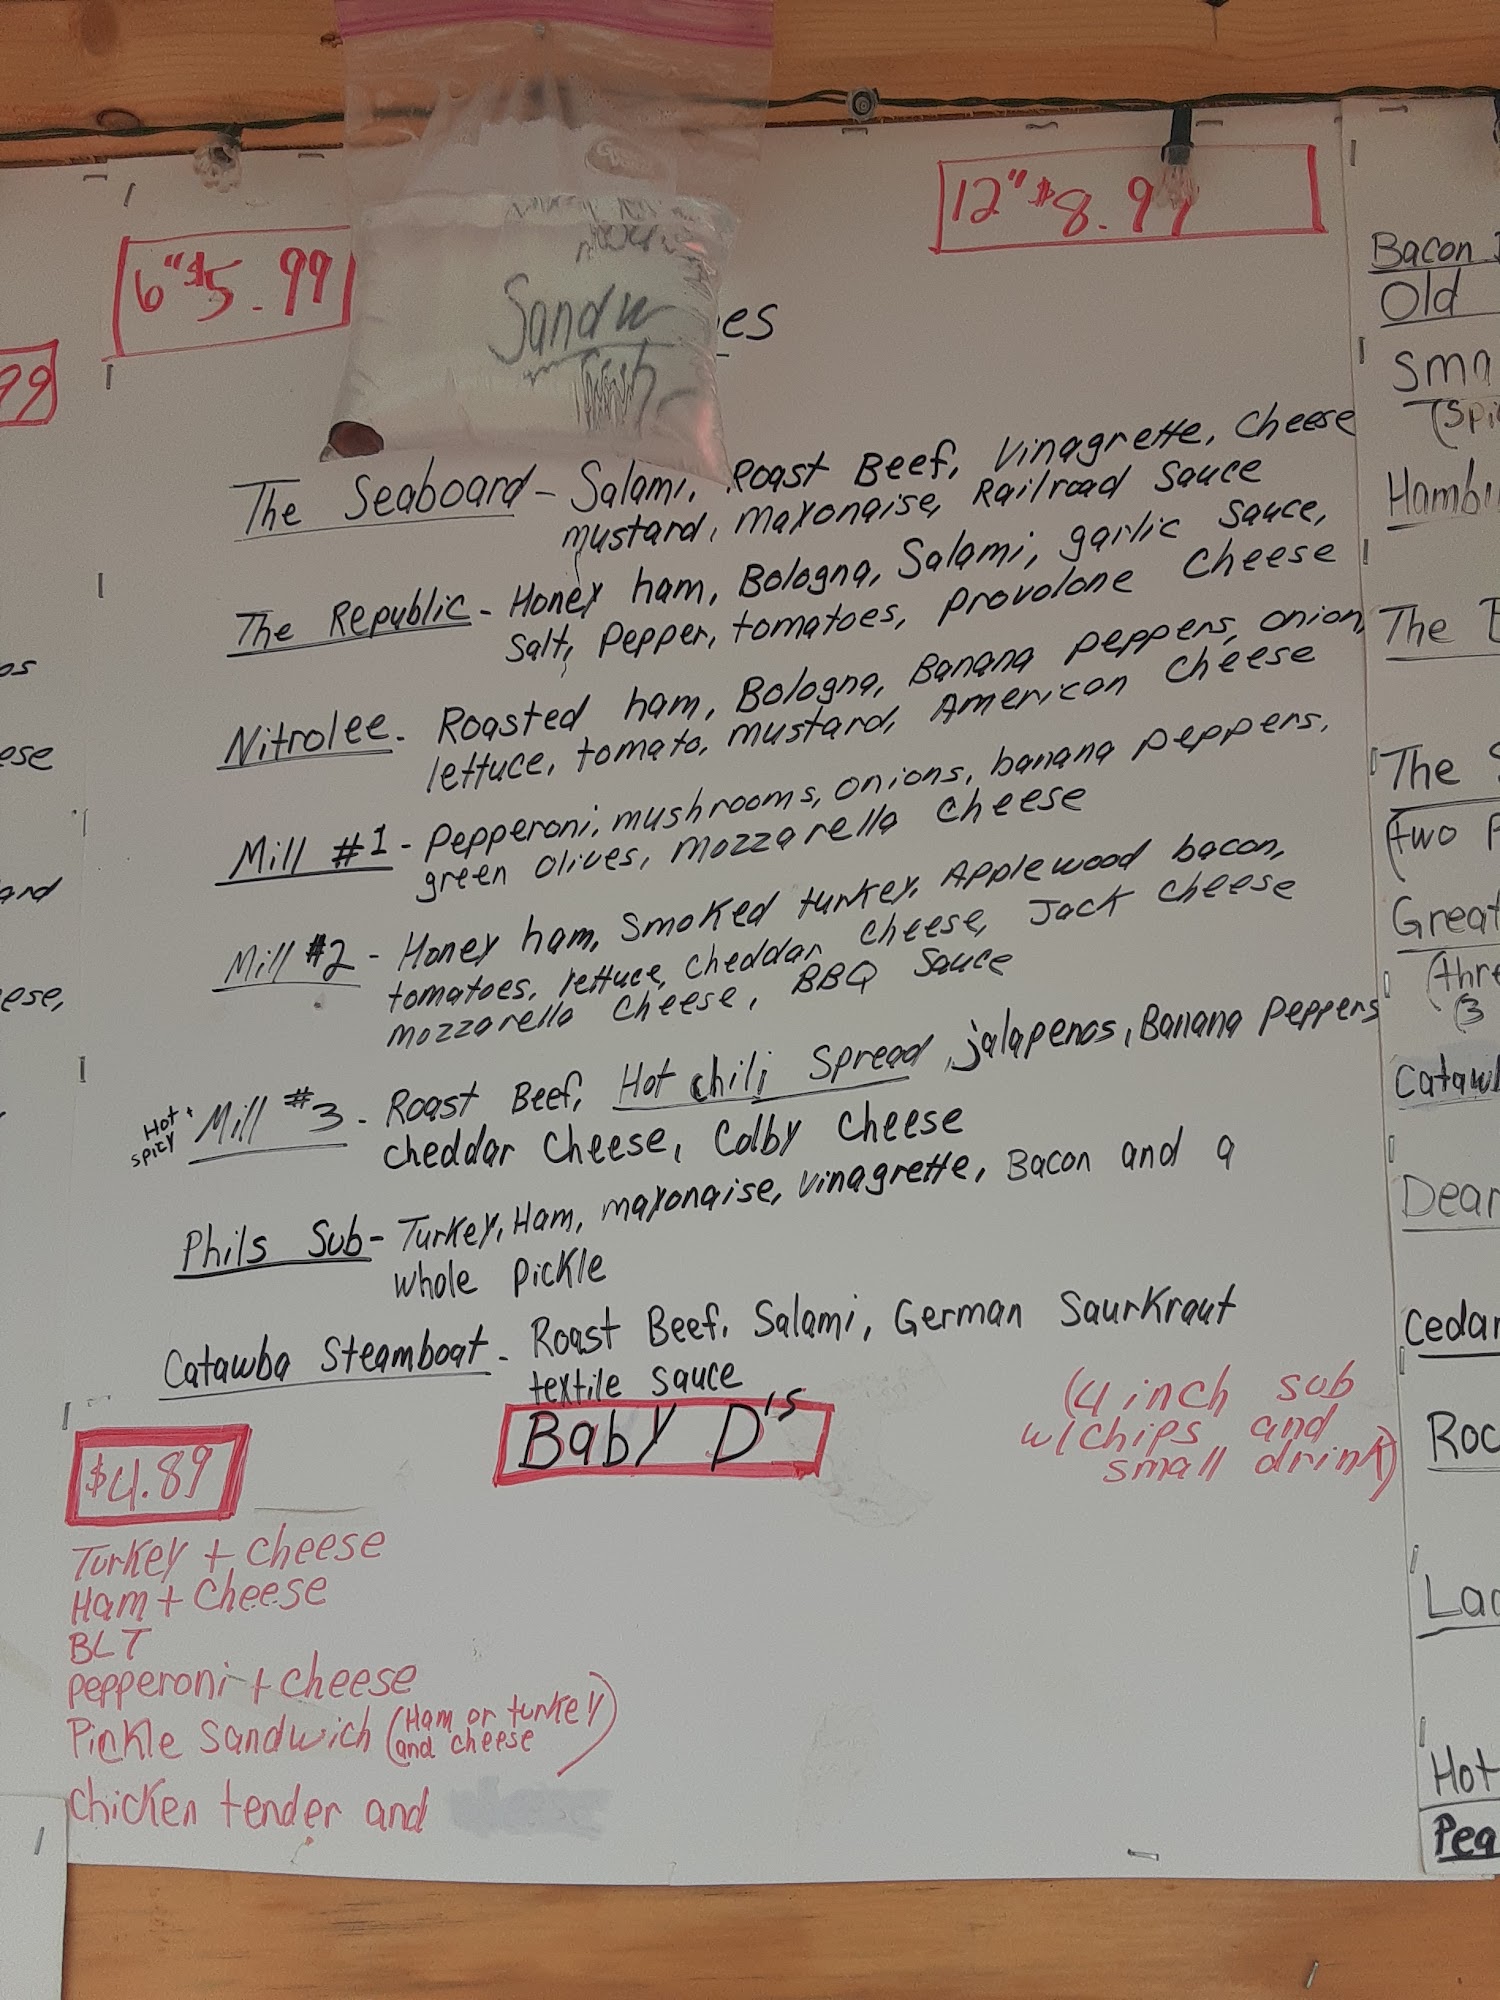 6" $5.99
12" $8.99
Sandw
es
The Seaboard - Salami, Roast Beef, Vinagrette, Cheese
mustard, mayonaise, Railroad Sauce
The Republic - Honey ham, Bologna, Salami, garlic sauce,
Salt, Pepper, tomatoes, provolone cheese
Nitrolee - Roasted ham, Bologna, Banana peppers, onion,
lettuce, tomato, mustard, American cheese
Mill #1 - Pepperoni, mushrooms, onions, banana peppers,
green olives, mozzarella cheese
Mill #2 - Honey ham, Smoked turkey, Applewood bacon,
tomatoes, lettuce, cheddar cheese, Jack cheese
mozzarella cheese, BBQ Sauce
Hot +
spicy
Mill #3 - Roast Beef, Hot chili Spread, jalapenos, Banana Peppers
cheddar cheese, Colby cheese
Phils Sub - Turkey, Ham, mayonaise, vinagrette, Bacon and a
whole pickle
Catawba Steamboat - Roast Beef, Salami, German SaurKraut
textile sauce
$4.89
Baby D's
(4 inch sub
w/chips and
small drink)
Turkey + cheese
Ham + cheese
BLT
pepperoni + cheese
Pickle sandwich (Ham or turkey
and cheese)
chicken tender and
99
os
ese
ard
ese,
Bacon
Old
Sma
(Spi
Hambu
The
The
(two P
Great
(thre
(3
Catawb
Dear
Cedar
Roc
Lac
Hot
Pea